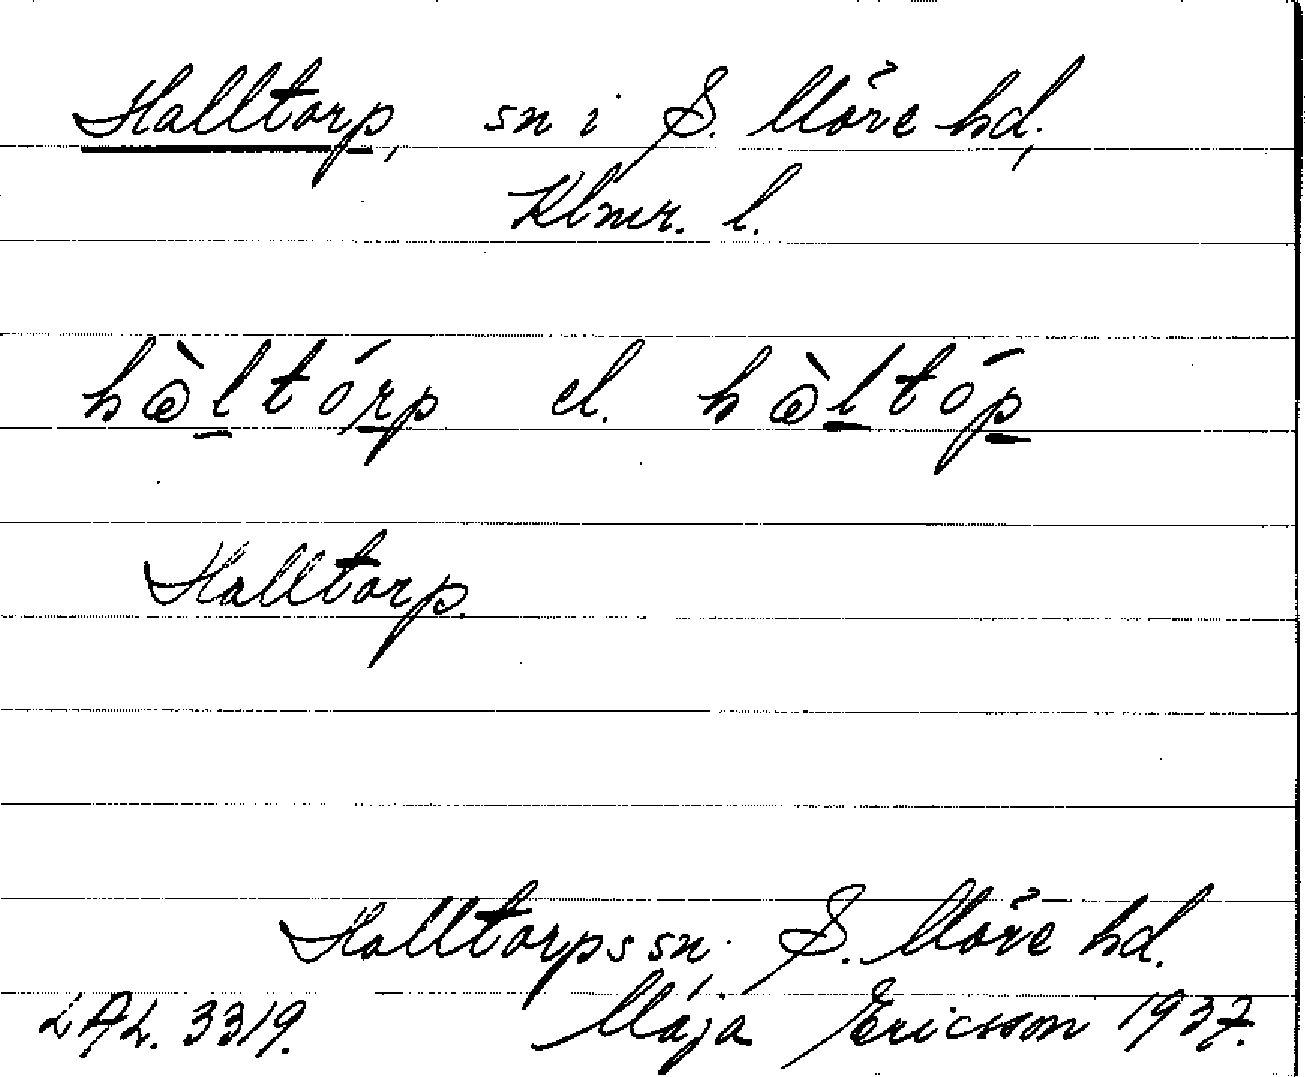 Halltorp, sn i S. Möre hd,
Klmr. l.
hàltórp el. hàltóp
Halltorp.
Halltorps sn, S. Möre hd.
LAL. 3319. Maja Ericsson 1937.